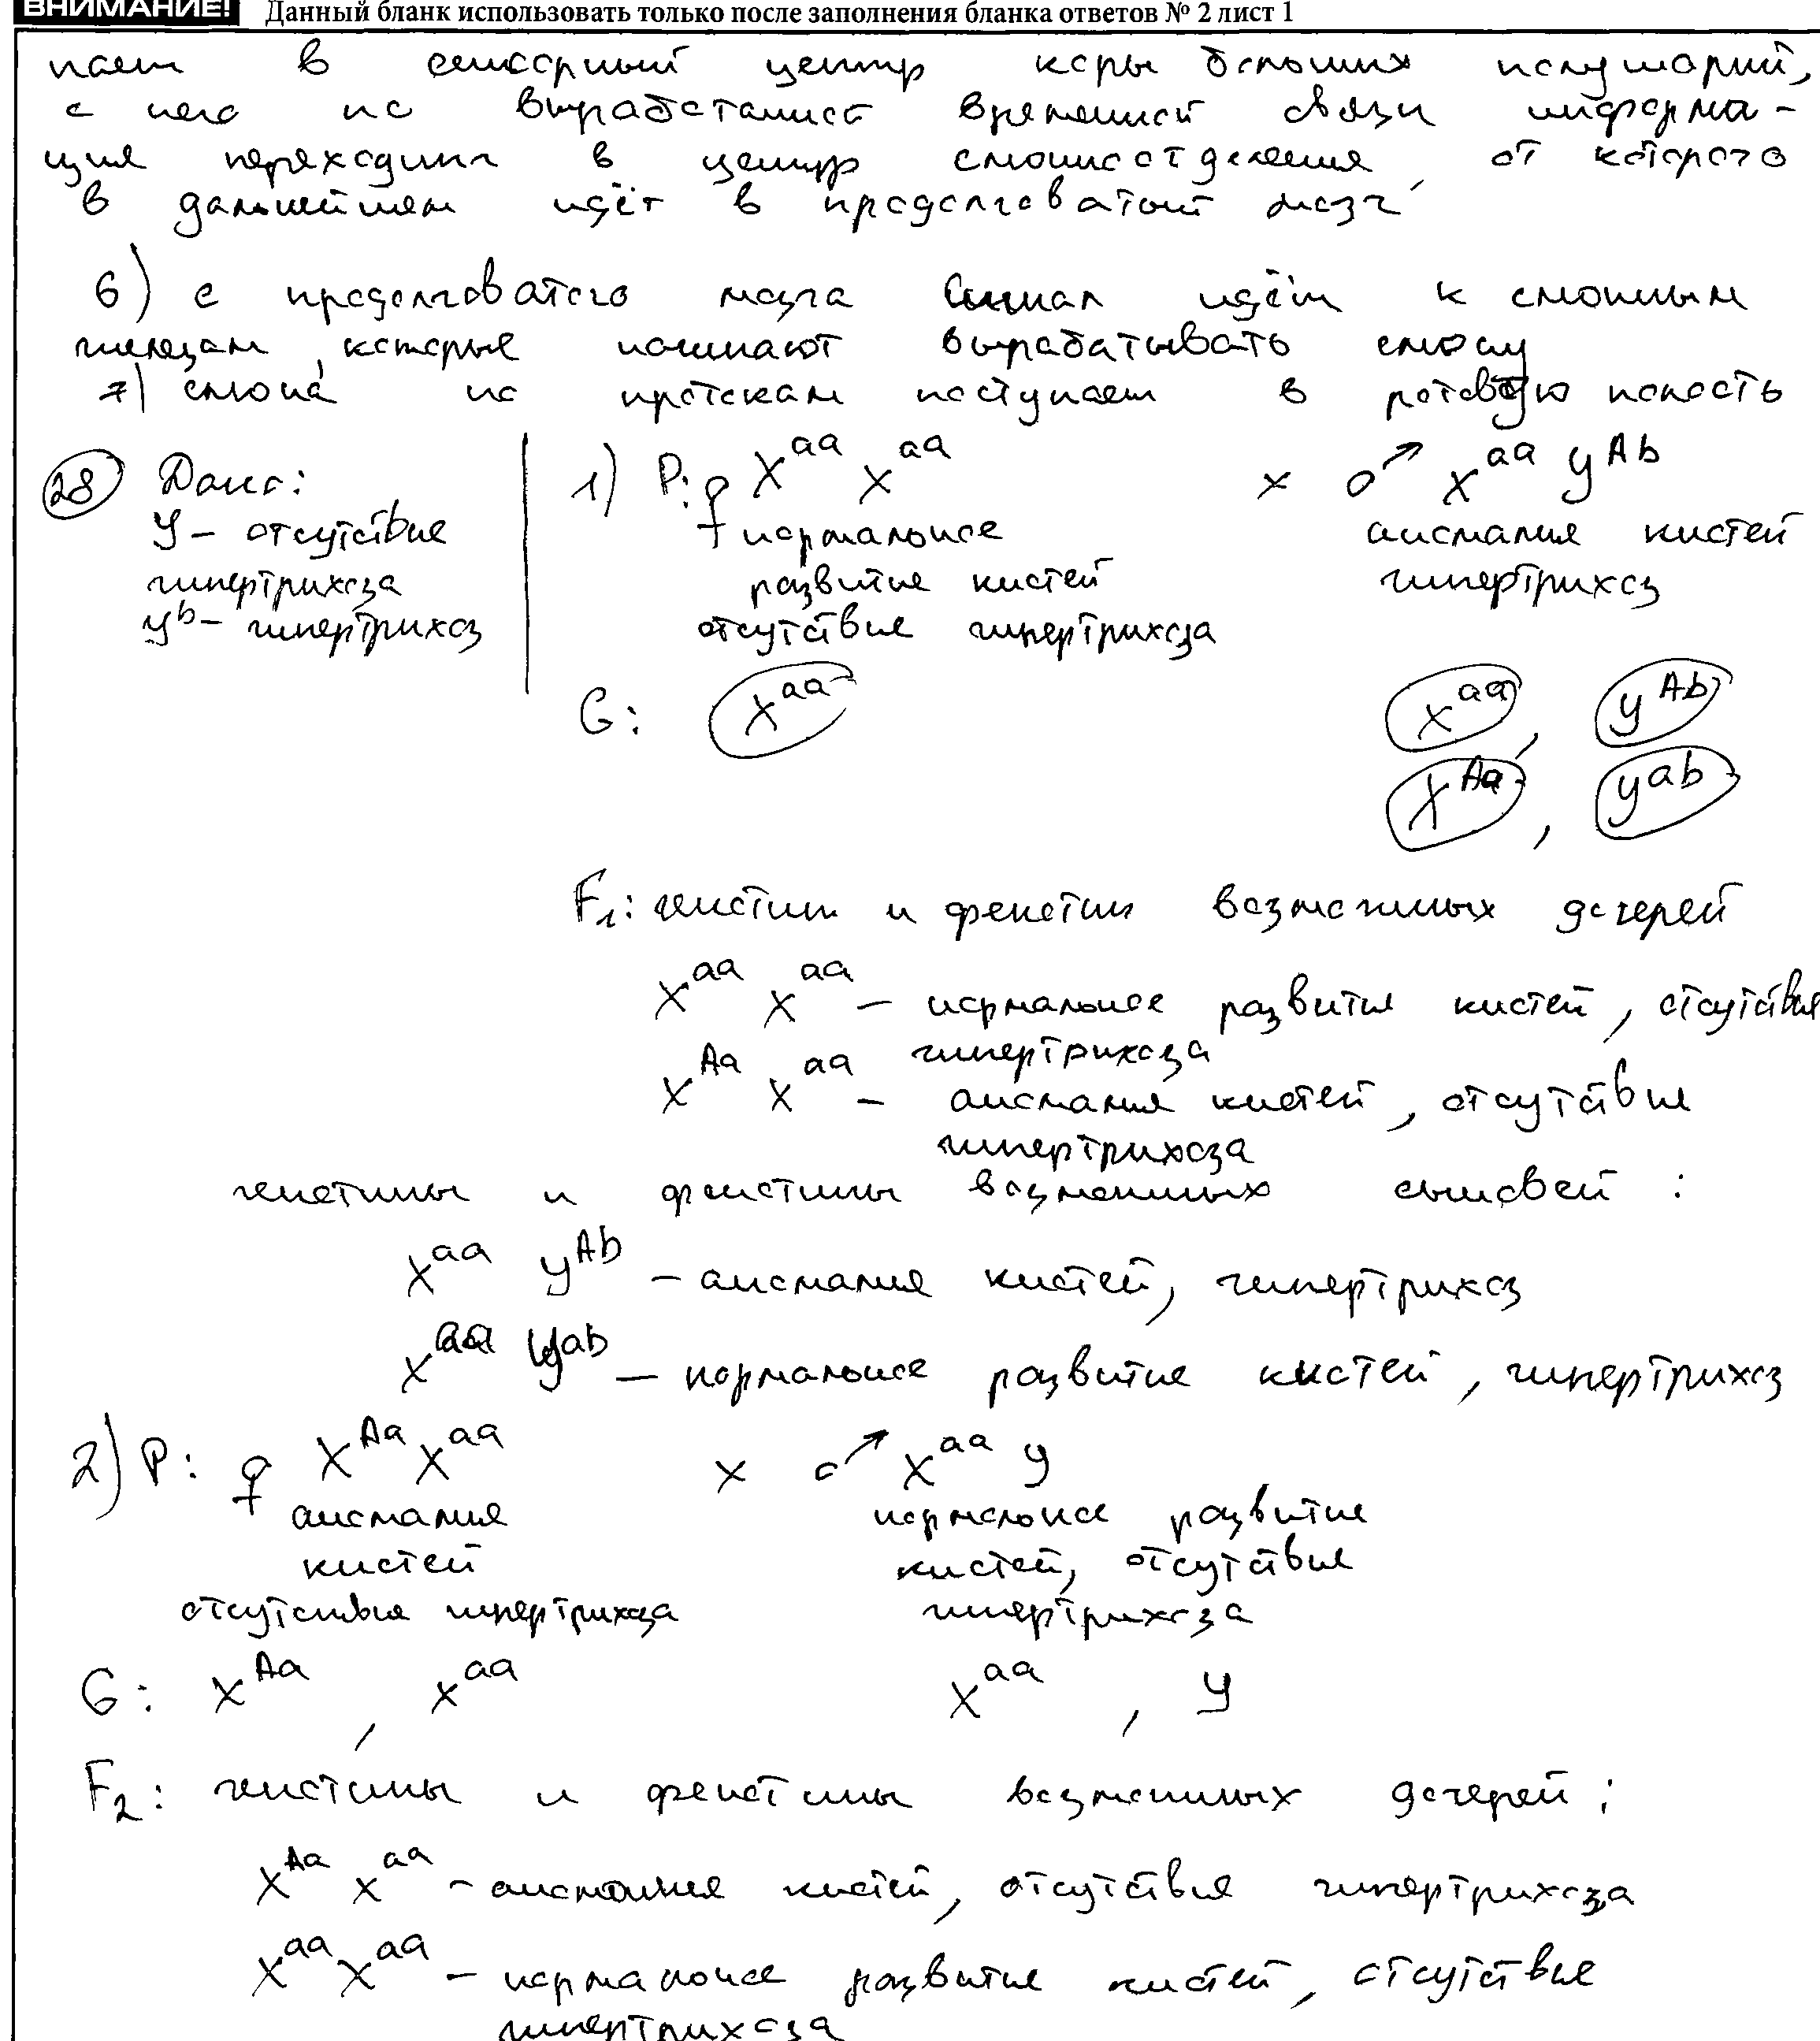 ВНИМАНИЕ! Данный бланк использовать только после заполнения бланка ответов № 2 лист 1
пает в сенсорный центр коры больших полушарий,
с него по выработанной временной связи информа-
ция переходит в центр слюноотделения, от которого
в дальнейшем идёт в продолговатый мозг
6) с продолговатого мозга сигнал идёт к слюнным
железам, которые начинают вырабатывать слюну
7) слюна по протокам поступает в ротовую полость
28 Дано:
У – отсутствие
гипертрихоза
У^b – гипертрихоз
1) P: ♀ X^aa X^aa × ♂ X^aa Y^Ab
нормальное аномалия кистей
развитие кистей гипертрихоз
отсутствие гипертрихоза
G: X^aa X^aa, Y^Ab
X^Aa, Y^ab
F1: генотип и фенотип возможных дочерей
X^aa X^aa – нормальное развитие кистей, отсутствие
гипертрихоза
X^Aa X^aa – аномалия кистей, отсутствие
гипертрихоза
генотипы и фенотипы возможных сыновей:
X^aa Y^Ab – аномалия кистей, гипертрихоз
X^aa Y^ab – нормальное развитие кистей, гипертрихоз
2) P: ♀ X^Aa X^aa × ♂ X^aa Y
аномалия нормальное развитие
кистей кистей, отсутствие
отсутствие гипертрихоза гипертрихоза
G: X^Aa, X^aa X^aa, Y
F2: генотипы и фенотипы возможных дочерей:
X^Aa X^aa – аномалия кистей, отсутствие гипертрихоза
X^aa X^aa – нормальное развитие кистей, отсутствие
гипертрихоза